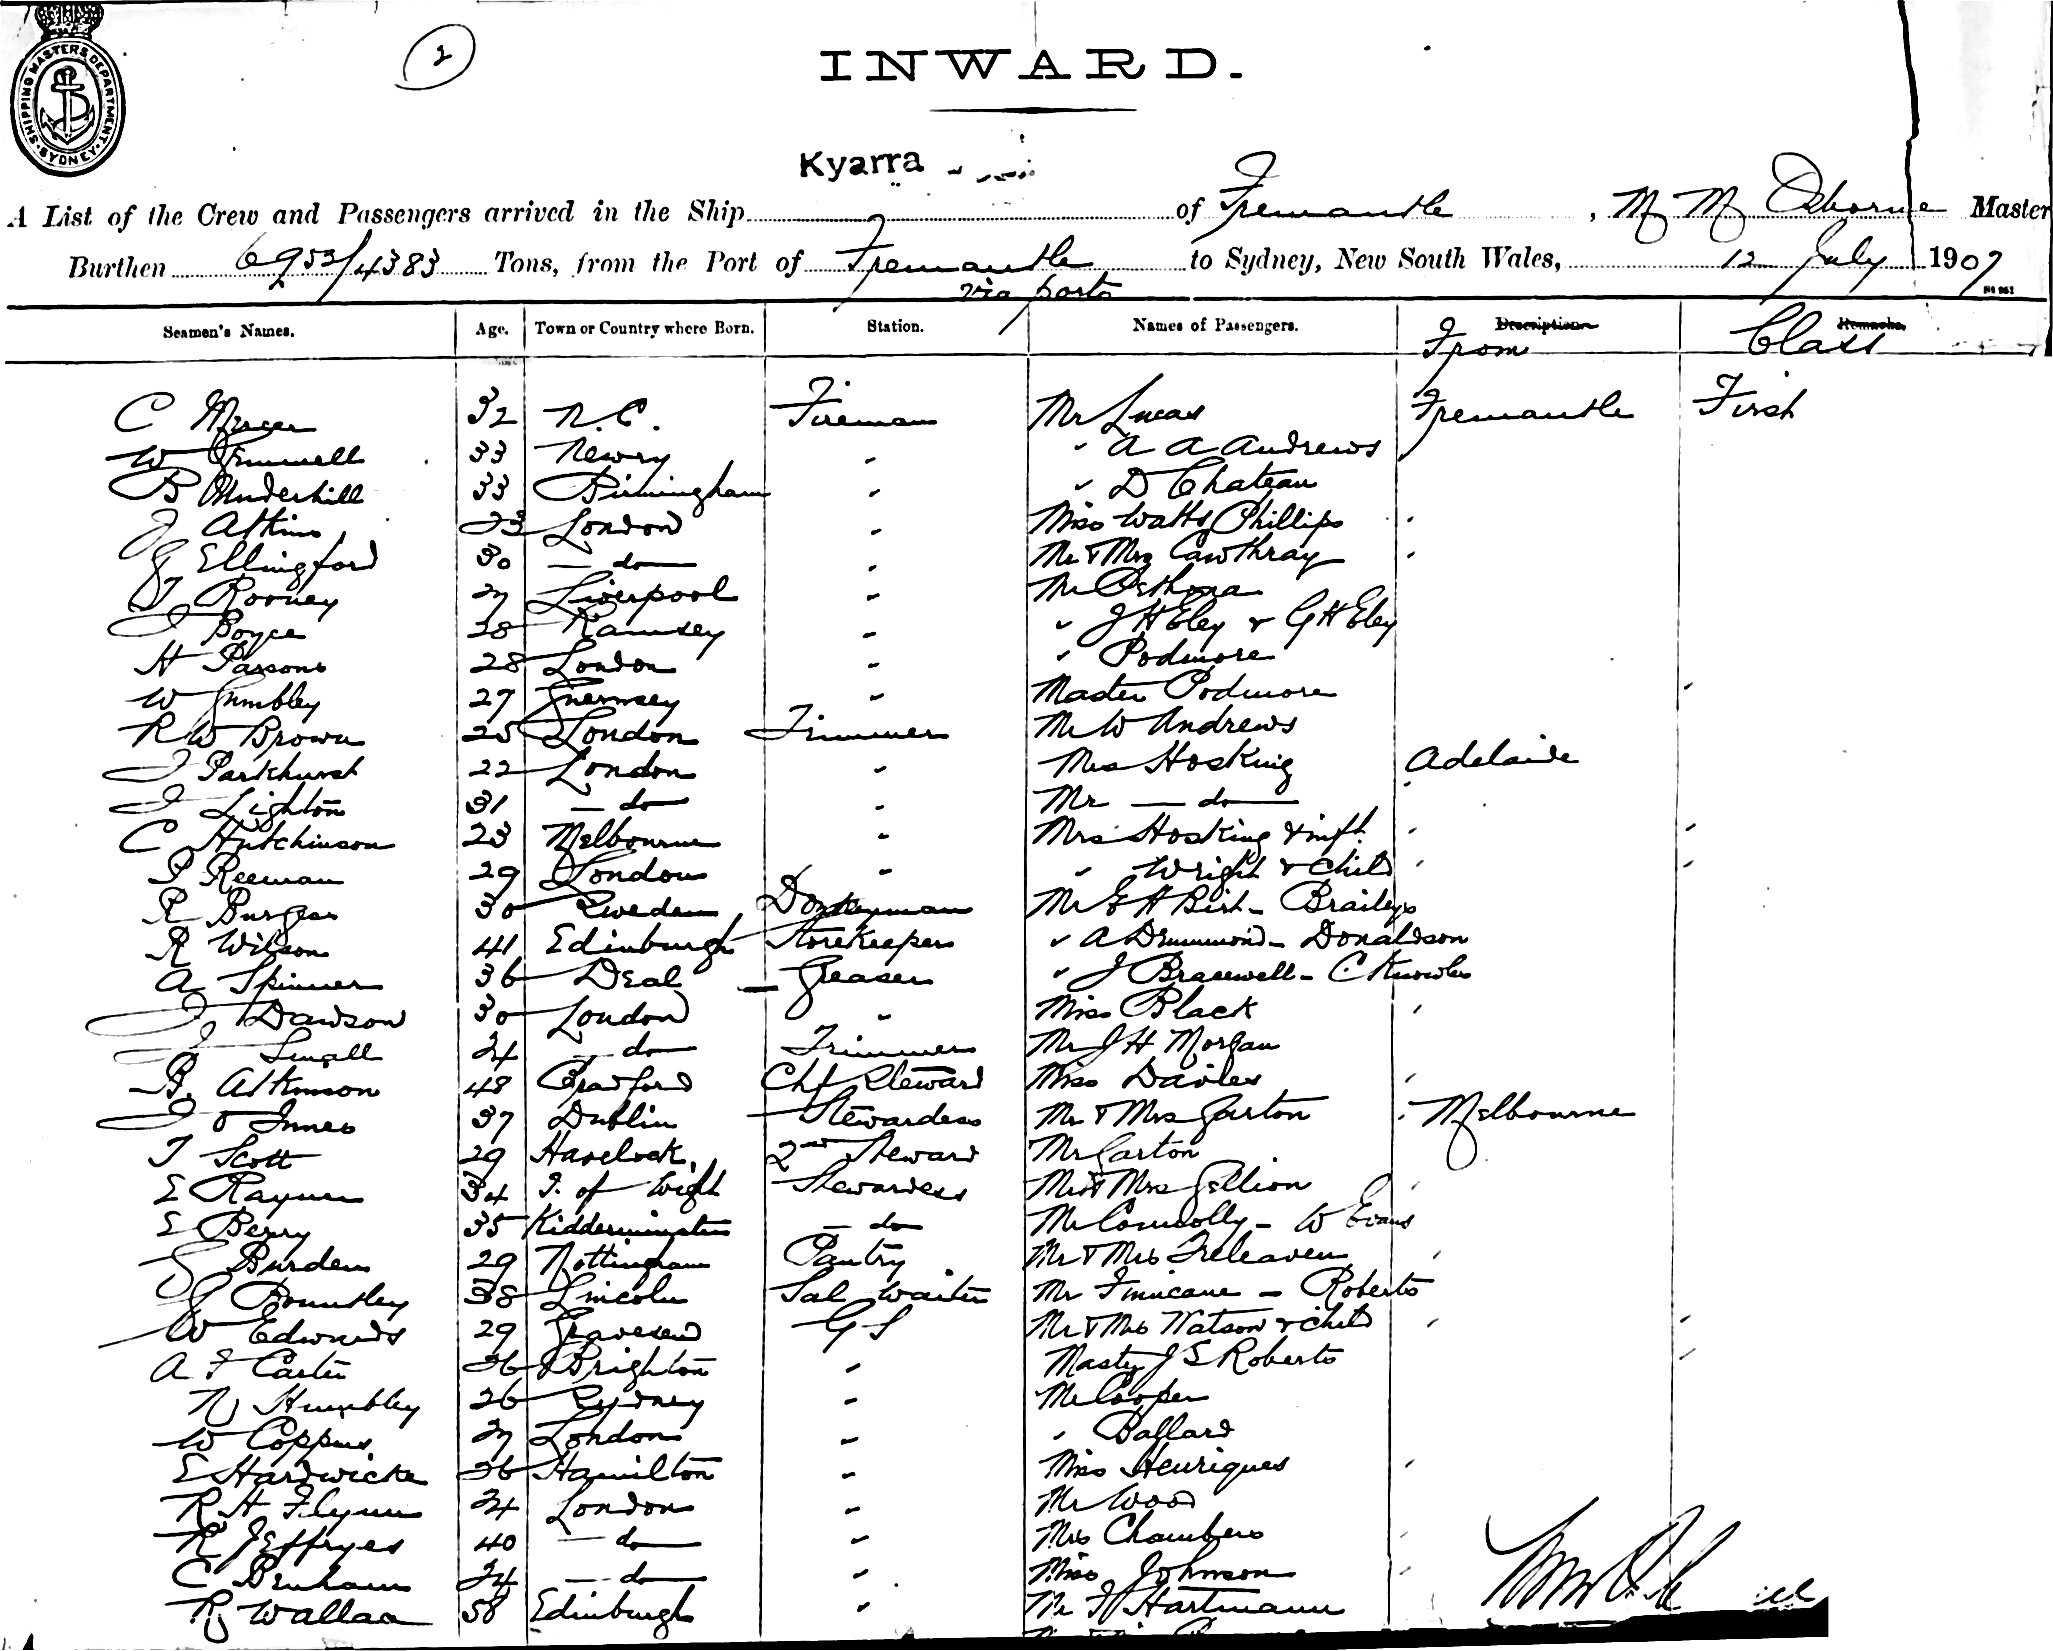 SHIPPING MASTERS DEPARTMENT. SYDNEY.
2
INWARD.
Kyarra
A List of the Crew and Passengers arrived in the Ship of Fremantle, M M Osborne Master
Burthen 6953/4383 Tons, from the Port of Fremantle to Sydney, New South Wales, 12 July 1907
via ports
Seamen's Names. Age. Town or Country where Born. Station. Names of Passengers. Description From Remarks Class
C Mercer 32 N.C. Fireman Mr Lucas Fremantle First
W Gemmell 33 Newry " " A A Andrews
B Underhill 33 Birmingham " " D Chateau
J Atkins 23 London " Miss Watts Phillips "
G Ellingford 30 — do — " Mr & Mrs Cawthray "
T Rooney 27 Liverpool " Mr
J Boyce 28 Ramsey " " J H Eley & G H Eley
H Parsons 28 London " " Podmore
W Gumbley 27 Guernsey " Master Podmore "
R W Brown 25 London Trimmer Mr W Andrews
J Parkhurst 22 London " Mrs Hosking Adelaide
J Lighton 31 — do — " Mr — do —
C Hutchinson 23 Melbourne " Mrs Hosking & inft. " "
P Reeman 29 London " " Wright & Child " "
R Burgess 30 Sweden Donkeyman Mr E H Birt - Braileys
R Wilson 41 Edinburgh Storekeeper " A Drummond - Donaldson
A Spinner 36 Deal — Greaser " J Bracewell - C Knowles
J Dawson 30 London " Miss Black "
J Small 24 — do — Trimmer Mr J H Morgan
B. Atkinson 48 Bradford Chf Steward Miss Davies "
J O Innes 37 Dublin Stewardess Mr & Mrs Garton " Melbourne
T Scott 29 Havelock 2nd Steward Mr Garton
E Rayner 34 I. of Wight Stewardess Mr & Mrs Gellion "
E Berry 35 Kidderminster — do Mr Connolly - W Evans
G Burden 29 Nottingham Pantry Mr & Mrs Treleaven "
G Bountley 38 Lincoln Sal Waiter Mr Finucane - Roberts
W Edwards 29 Gravesend G S Mr & Mrs Watson & child " "
A F Carter 26 Brighton " Mastr J S Roberts "
N Humbley 26 Sydney " Mr Cooper
W Coppins 27 London " " Ballard
E Hardwicke 26 Hamilton " Miss Henriques "
R H Flynn 24 London " Mr Wood
R Jeffryes 40 — do — " Mrs Chambers "
C Benham 24 — do — " Miss Johnson "
R Wallace 58 Edinburgh " Mr F Hartmann "